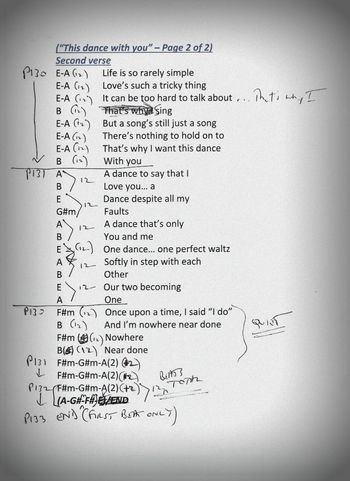 ("This dance with you" – Page 2 of 2)
Second verse
P130 E-A (12) Life is so rarely simple
E-A (12) Love's such a tricky thing
E-A (12) It can be too hard to talk about ... That's why I
B (12) That's why I sing
E-A (12) But a song's still just a song
E-A (12) There's nothing to hold on to
E-A (12) That's why I want this dance
B (12) With you
P131 A A dance to say that I
B 12 Love you... a
E Dance despite all my
G#m 12 Faults
A A dance that's only
B 12 You and me
E (12) One dance... one perfect waltz
A 12 Softly in step with each
B Other
E 12 Our two becoming
A One
P130 F#m (12) Once upon a time, I said "I do"
B (12) And I'm nowhere near done QUIET
F#m (12) Nowhere
B (12) Near done
P131 F#m-G#m-A(2) (12)
F#m-G#m-A(2) (12) BEATS TOTAL
P132 F#m-G#m-A(2) (12) 12
(A-G#-F#)-E/END
P133 END (FIRST BEAT ONLY)